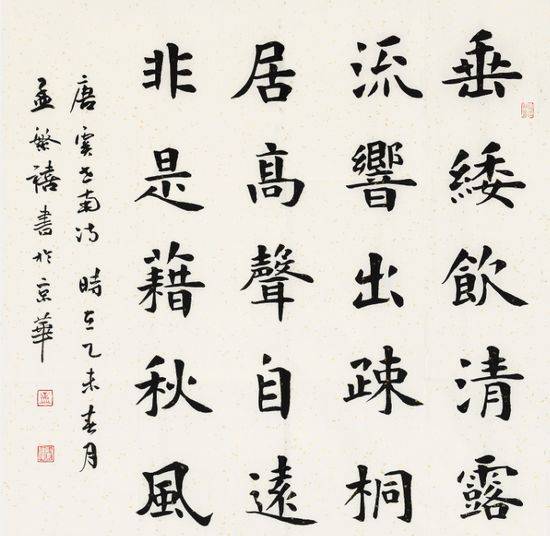 垂緌飲清露
流響出疎桐
居高聲自遠
非是藉秋風
唐虞世南诗 時在乙未春月
孟繁禧書於京華